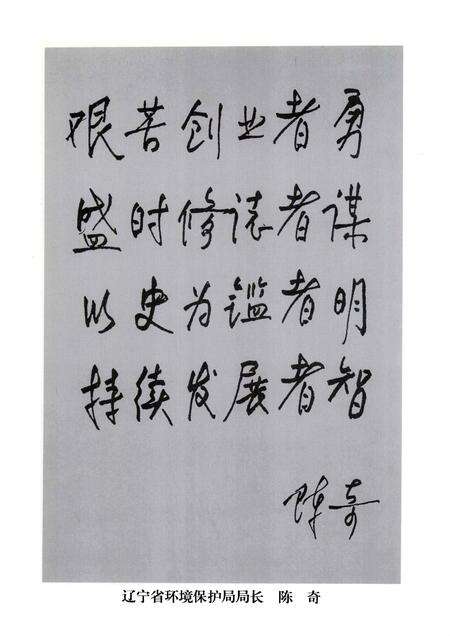 艰苦创业者勇
盛时修志者谋
以史为鉴者明
持续发展者智
陈奇
辽宁省环境保护局局长 陈 奇